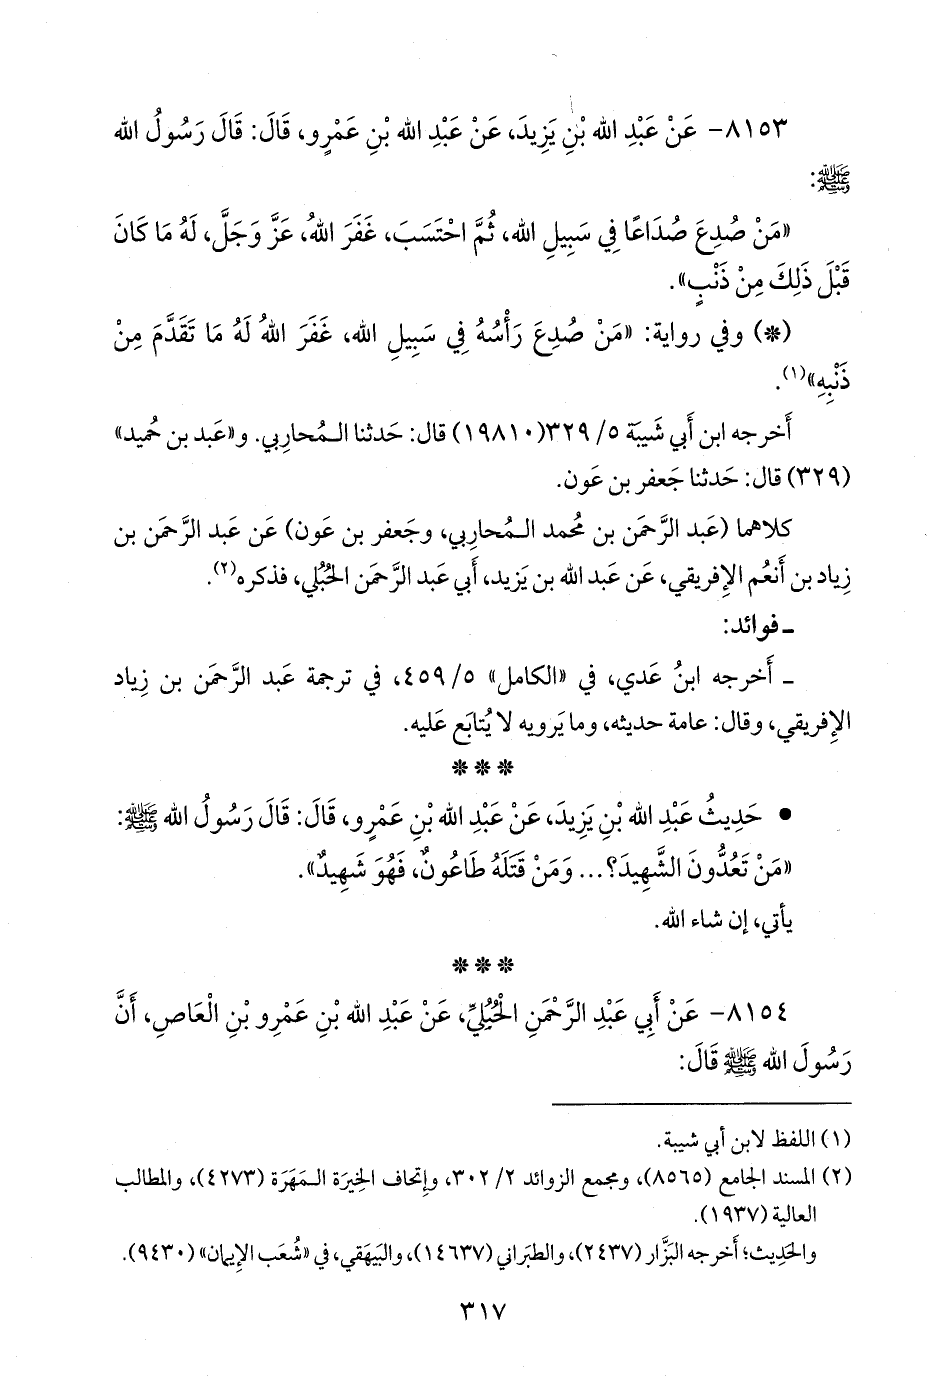 ٨١٥٣- عَنْ عَبْدِ الله بْنِ يَزِيدَ، عَنْ عَبْدِ الله بْنِ عَمْرٍو، قَالَ: قَالَ رَسُولُ الله
ﷺ:
«مَنْ صُدِعَ صُدَاعًا فِي سَبِيلِ الله، ثُمَّ احْتَسَبَ، غَفَرَ اللهُ، عَزَّ وَجَلَّ، لَهُ مَا كَانَ
قَبْلَ ذَلِكَ مِنْ ذَنْبٍ».
(*) وفي رواية: «مَنْ صُدِعَ رَأْسُهُ فِي سَبِيلِ الله، غَفَرَ اللهُ لَهُ مَا تَقَدَّمَ مِنْ
ذَنْبِهِ»(١).
أَخرجه ابن أَبي شَيبَة ٥/ ٣٢٩(١٩٨١٠) قال: حَدثنا الـمُحاربي. و«عَبد بن حُميد»
(٣٢٩) قال: حَدثنا جَعفر بن عَون.
كلاهما (عَبد الرَّحمَن بن مُحمد الـمُحاربي، وجَعفر بن عَون) عَن عَبد الرَّحمَن بن
زِياد بن أَنعُم الإِفريقي، عَن عَبد الله بن يَزيد، أَبي عَبد الرَّحمَن الحُبُلي، فذكره(٢).
ـ فوائد:
ـ أَخرجه ابنُ عَدي، في «الكامل» ٥/ ٤٥٩، في ترجمة عَبد الرَّحمَن بن زِياد
الإِفريقي، وقال: عامة حديثه، وما يَرويه لا يُتابَع عَليه.
* * *
• حَدِيثُ عَبْدِ الله بْنِ يَزِيدَ، عَنْ عَبْدِ الله بْنِ عَمْرٍو، قَالَ: قَالَ رَسُولُ الله ﷺ:
«مَنْ تَعُدُّونَ الشَّهِيدَ؟... وَمَنْ قَتَلَهُ طَاعُونٌ، فَهُوَ شَهِيدٌ».
يأتي، إن شاء الله.
* * *
٨١٥٤- عَنْ أَبِي عَبْدِ الرَّحْمَنِ الْحُبُلِيِّ، عَنْ عَبْدِ الله بْنِ عَمْرِو بْنِ الْعَاصِ، أَنَّ
رَسُولَ الله ﷺ قَالَ:
(١) اللفظ لابن أبي شيبة.
(٢) المسند الجامع (٨٥٦٥)، ومجمع الزوائد ٢/ ٣٠٢، وإتحاف الخِيرَة الـمَهَرَة (٤٢٧٣)، والمطالب
العالية (١٩٣٧).
والحَدِيث؛ أَخرجه البَزَّار (٢٤٣٧)، والطبَراني (١٤٦٣٧)، والبَيهَقي، في «شُعَب الإِيمان» (٩٤٣٠).
٣١٧